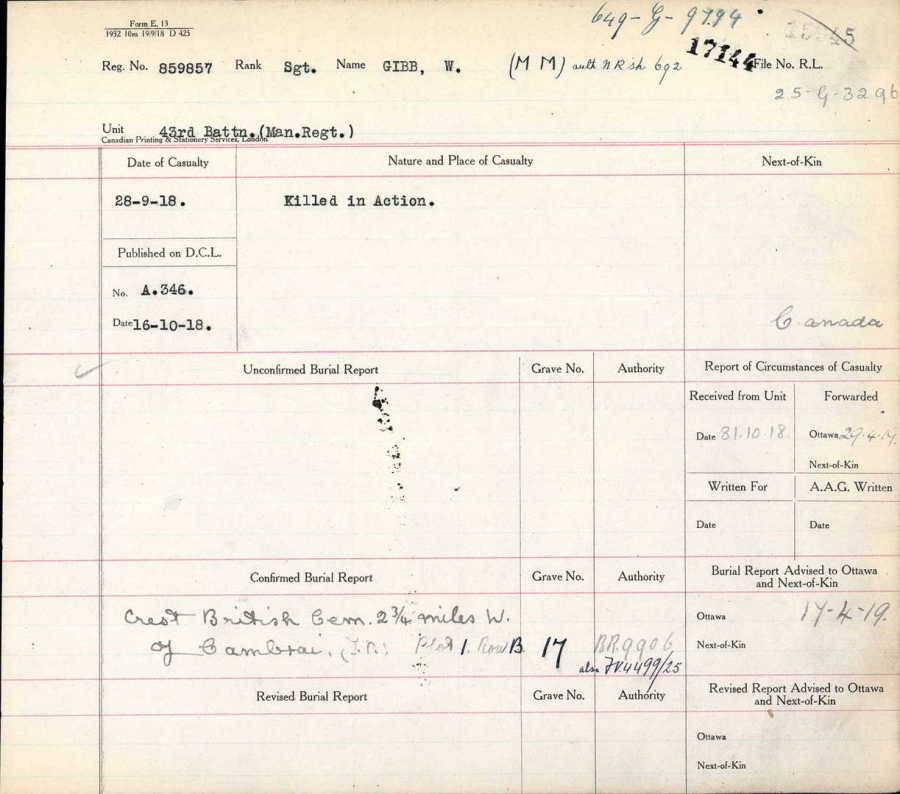 Form E. 13
1932 10m 19/9/18 D 425
649-G-9794
17144
Reg. No. 859857 Rank Sgt. Name GIBB, W. (M M) auth N R sh 692 File No. R.L.
25-G-3296
Unit 43rd Battn.(Man.Regt.)
Canadian Printing & Stationery Services, London
Date of Casualty Nature and Place of Casualty Next-of-Kin
28-9-18. Killed in Action.
Published on D.C.L.
No. A.346.
Date 16-10-18.
Canada
Unconfirmed Burial Report Grave No. Authority Report of Circumstances of Casualty
Received from Unit Forwarded
Date 31.10.18. Ottawa 29.4.19.
Next-of-Kin
Written For A.A.G. Written
Date Date
Confirmed Burial Report Grave No. Authority Burial Report Advised to Ottawa
and Next-of-Kin
Crest British Cem. 2¾ miles W. Ottawa 17-4-19.
of Cambrai. Plot 1. Row B. 17 BR.9906 Next-of-Kin
also JV4499/25
Revised Burial Report Grave No. Authority Revised Report Advised to Ottawa
and Next-of-Kin
Ottawa
Next-of-Kin